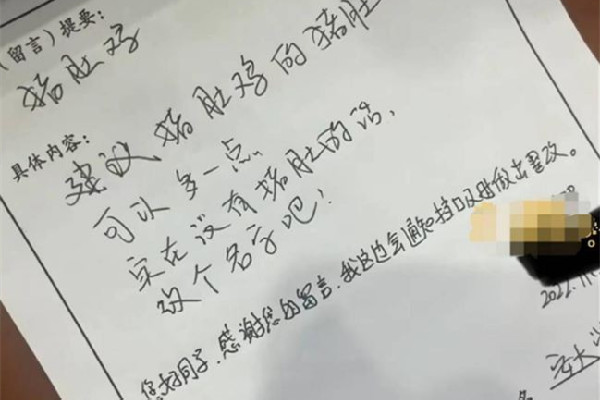 （留言）提要：
猪肚鸡
具体内容：
建议猪肚鸡的猪肚
可以多一点
实在没有猪肚的话，
改个名字吧！
您好同学，感谢您的留言，我这边会通知档口及时做出整改。
2022.11